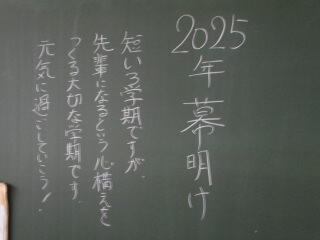 2025年幕明け
短い3学期ですが、
先輩になるという心構えを
つくる大切な学期です。
元気に過ごしていこう!